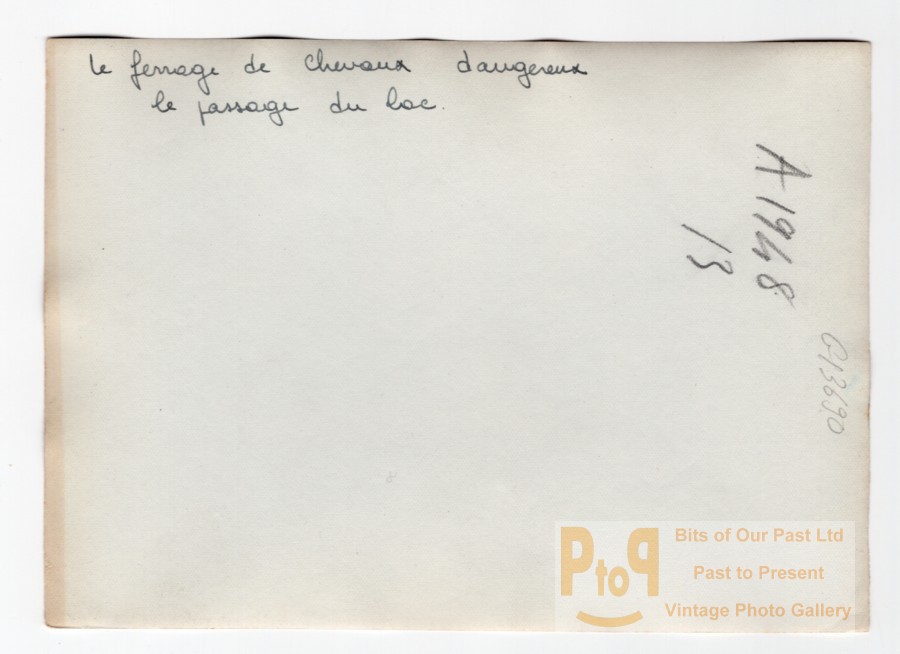 le ferrage de chevaux dangereux
le passage du lac.
A 1948
13
G13690
PtoP
Bits of Our Past Ltd
Past to Present
Vintage Photo Gallery